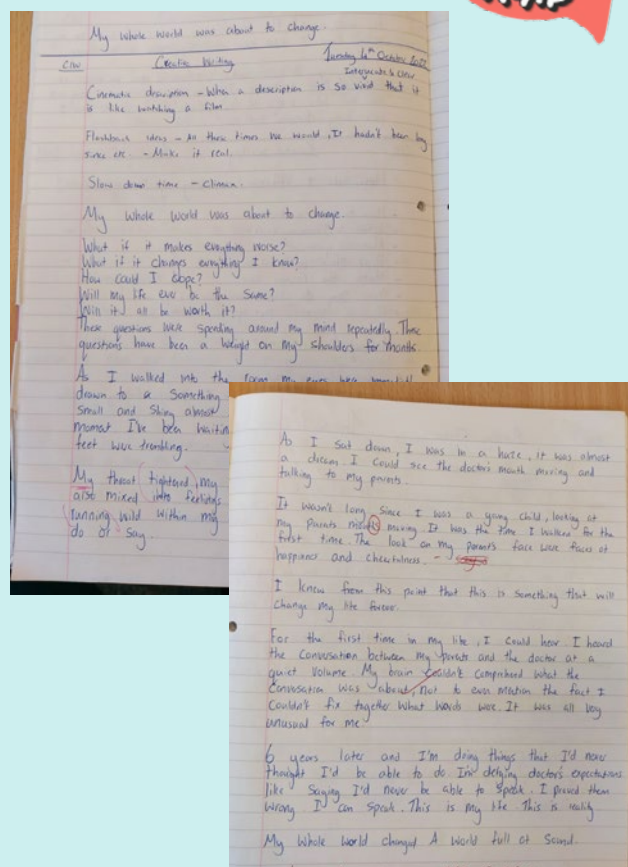 My whole world was about to change.
C/W Creative Writing Tuesday 4th October 2022
Cinematic description - When a description is so vivid that it
is like watching a film.
Flashback ideas - All those times we would, It hadn't been long
since etc. - Make it real.
Slow down time - Climax.
My whole world was about to change.
What if it makes everything worse?
What if it changes everything I know?
How could I cope?
Will my life ever be the same?
Will it all be worth it?
These questions were spending around my mind repeatedly. These
questions have been a weight on my shoulders for months.
As I walked into the room my eyes were
drawn to a something
small and shiny almost
moment I've been waitin
feet were trembling.
My throat tightened, my
also mixed into feelings
running wild within my
do or say.
As I sat down, I was in a haze, it was almost
a dream. I could see the doctor's mouth moving and
talking to my parents.
It wasn't long since I was a young child, looking at
my parents moving. It was the time I walked for the
first time. The look on my parents face were faces of
happiness and cheerfulness. -
I knew from this point that this is something that will
change my life forever.
For the first time in my life, I could hear. I heard
the conversation between my parents and the doctor at a
quiet volume. My brain couldn't comprehend what the
conversation was about, not to even mention the fact I
couldn't fix together what words were. It was all very
unusual for me.
6 years later and I'm doing things that I'd never
thought I'd be able to do. I'm defying doctor's expectations
like saying I'd never be able to speak. I proved them
wrong. I can speak. This is my life This is reality
My whole world changed A world full of sound.